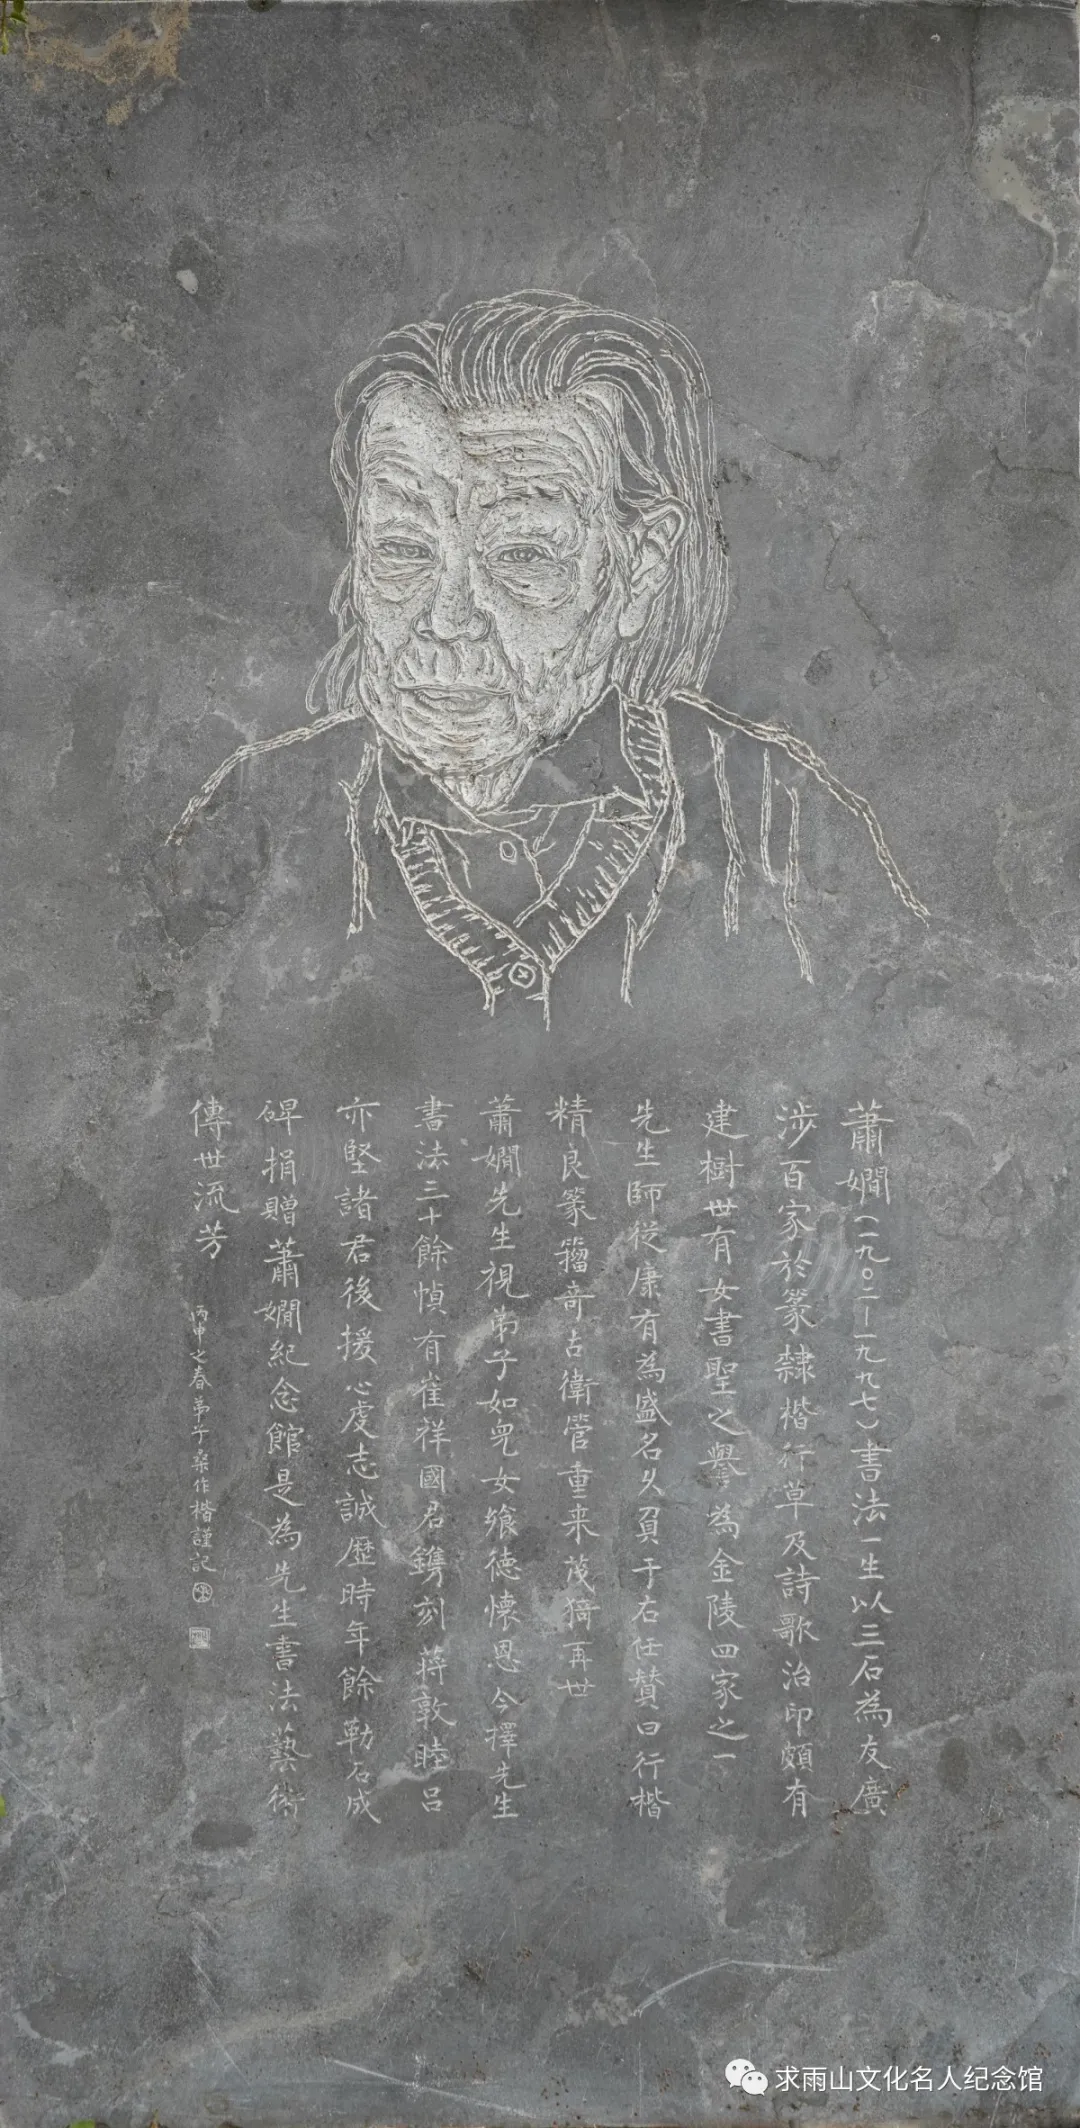 蕭嫻(一九〇二—一九九七)書法一生以三石為友廣
涉百家於篆隸楷行草及詩歌治印頗有
建樹世有女書聖之譽為金陵四家之一
先生師從康有為盛名久負于右任贊曰行楷
精良篆籀奇古衛管重来茂猗再世
蕭嫻先生視弟子如兒女飨德懷恩今擇先生
書法三十餘幀有崔祥國君鐫刻蒋敦睦吕
亦堅諸君後援心虔志誠歷時年餘勒石成
碑捐贈蕭嫻紀念館是為先生書法藝術
傳世流芳
丙申之春弟子桑作楷謹記
求雨山文化名人纪念馆